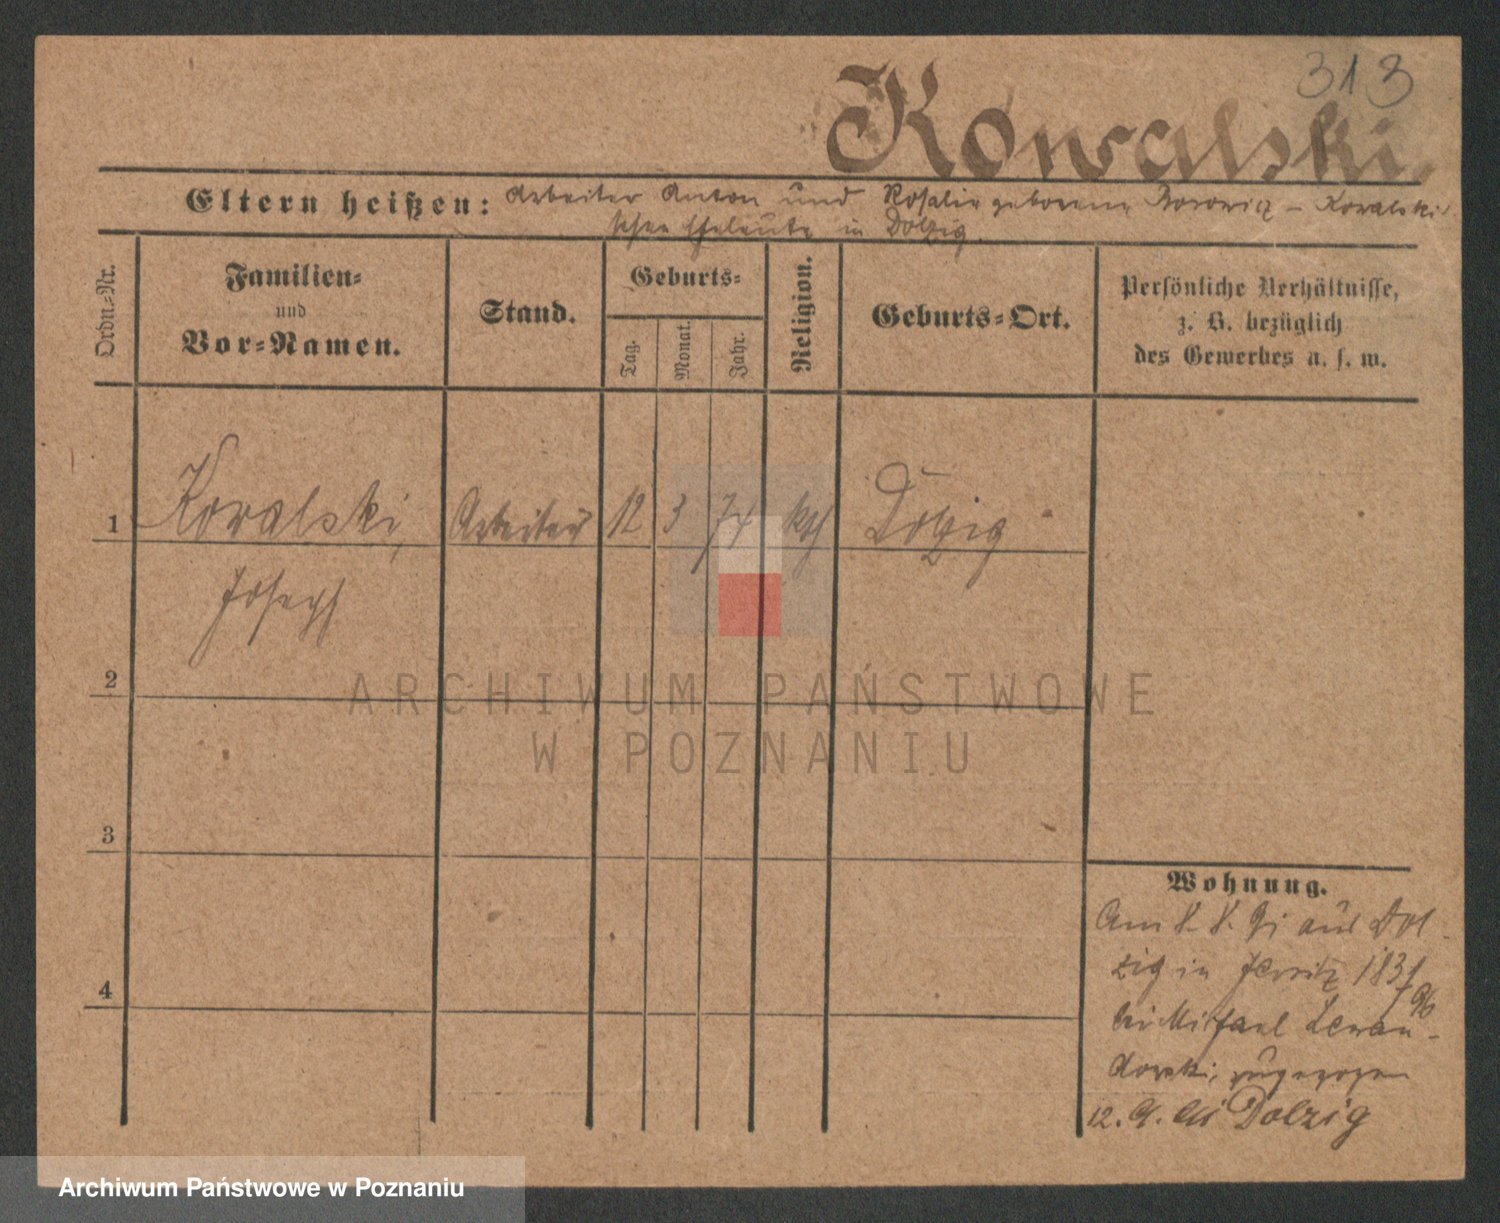 313
Kowalski.
Eltern heißen: Arbeiter Anton und Rosalie geborene Borowicz - Kowalski
schen Eheleute in Dolzig.
Ordn.-Nr.
Familien-
und
Vor-Namen.
Stand.
Geburts-
Tag.
Monat.
Jahr.
Religion.
Geburts-Ort.
Persönliche Verhältnisse,
z. B. bezüglich
des Gewerbes u. s. w.
1 Kowalski, Arbeiter 12 3 74 kth Dolzig
Joseph
2
ARCHIWUM PAŃSTWOWE
W POZNANIU
3
4
Wohnung.
Am 8. 8. 96 aus Dol-
zig in Jersitz 183
bei Michael Lewan-
dowski, zugezogen
12. 9. Dolzig
Archiwum Państwowe w Poznaniu